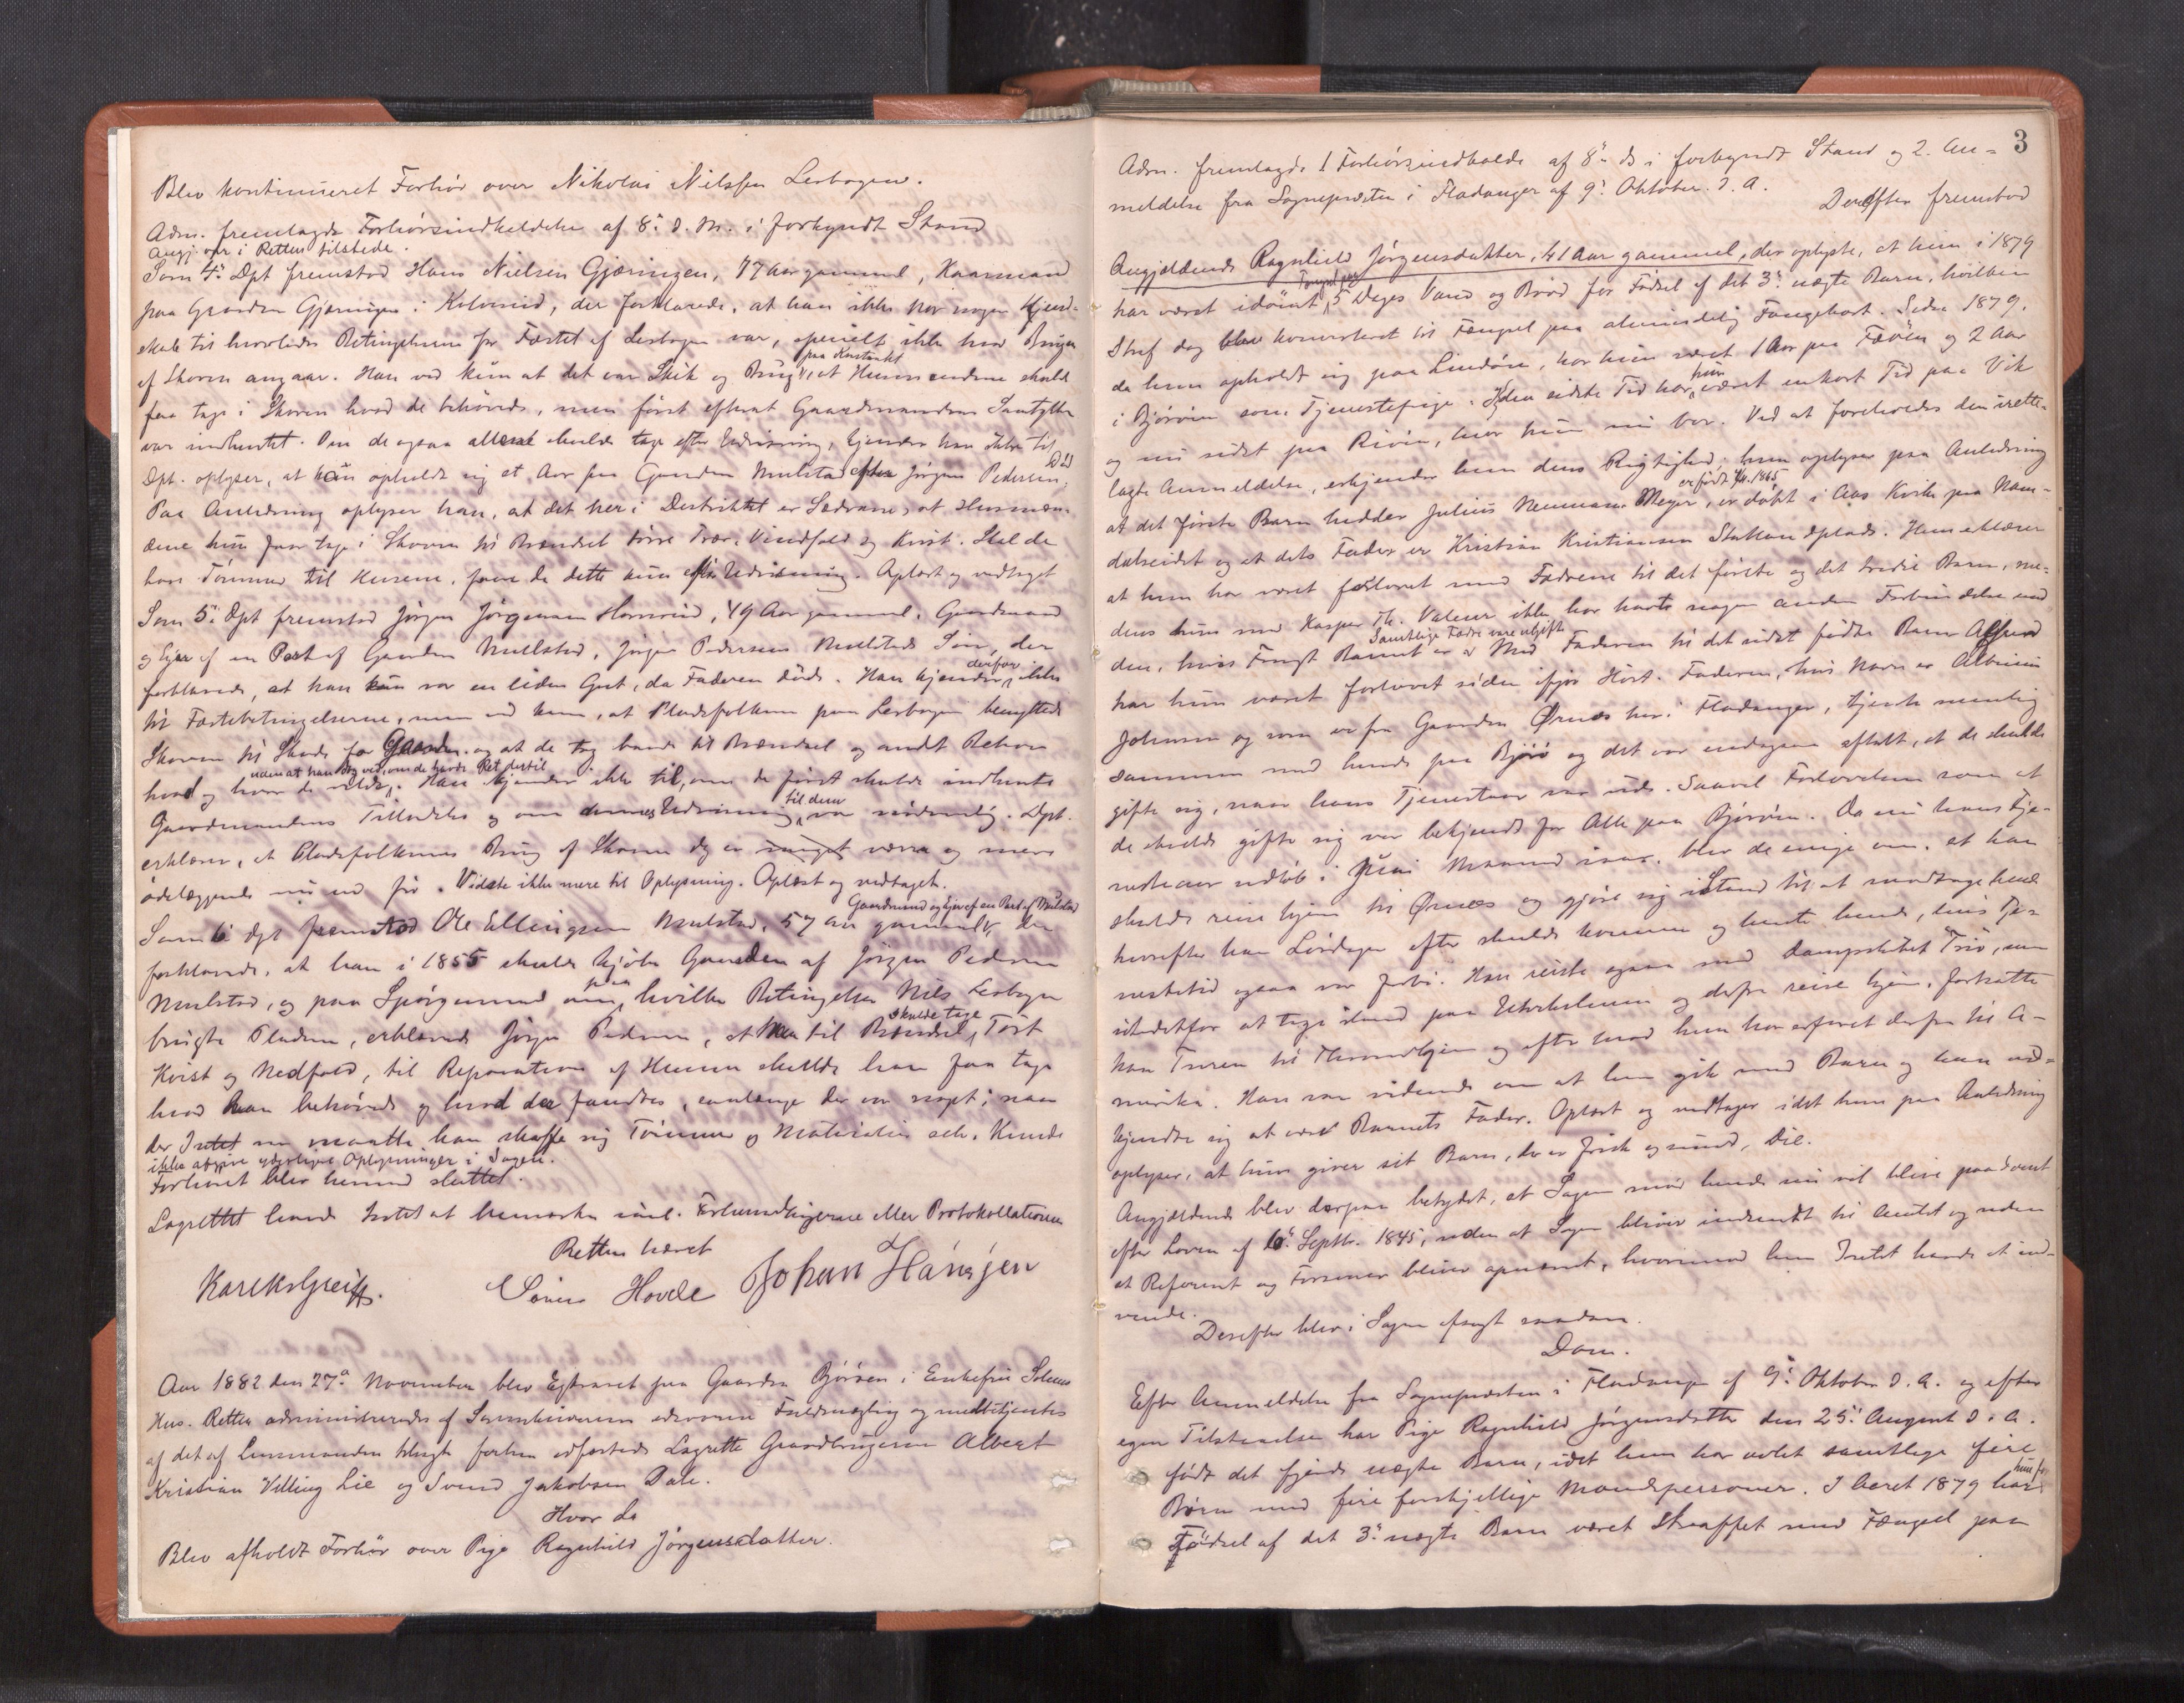 Blev kontinueret Forhør over Nikolai Nilssen Lerbogen.
Adm. fremlagde Forhørsindkaldelse af 8de d. M. i forkyndt Stand
Angj. var i Retten tilstede.
Som 4de Dpt fremstod Hans Nielsen Gjæringen, 77 Aar gammel, Kaarmand
paa Gaarden Gjæringen i Kolvereid, der forklarede, at han ikke har nogen Kjend-
skab til hvorledes Betingelserne for Fæstet af Lerbogen var, specielt ikke hvad Brugen
af Skoven angaar. Han ved kun at det var Skik og Brug paa Kanten at Husmændene skulde
faa tage i Skoven hvad de behøvede, men først efterat Gaardmandens Samtykke
var indhentet. Om de ogsaa altsaa skulde tage efter Udvisning, kjender han ikke til.
Dpt. oplyser, at han opholdt sig et Aar paa Gaarden Mulstad efter Jørgen Pedersens Død
Paa Anledning oplyser han, at det her i Distriktet er Sædvane, at Husmæn-
dene kun faar tage i Skoven til Brændsel tørre Trær, Vindfald og Kvist. Skal de
have Tømmer til Husene, faar de dette kun efter Udvisning. Oplæst og vedtaget
Som 5de Dpt fremstod Jørgen Jørgensen Horvereid, 49 Aar gammel, Gaardmand
og Ejer af en Part af Gaarden Mulstad, Jørgen Pedersen Mulstads Søn, der
forklarede, at han kun var en liden Gut, da Faderen døde. Han kjender derfor ikke
til Fæstebetingelserne, men ved kun, at Pladsfolkene paa Lerbogen benyttede
Skoven til Skade for Gaarden og at de tog baade til Brændsel og andet Behov
hvad og hvor de vilde, uden at han dog ved, om de havde Ret dertil. Han kjender ikke til, om de først skulde indhente
Gaardmandens Tilladelse og om dennes Udvisning til dem var nødvendig. Dpt.
erklærer, at Pladsfolkenes Brug af Skoven dog er meget værre og mere
ødelæggende nu end før. Vidste ikke mere til Oplysning. Oplæst og vedtaget.
Som 6 Dpt fremstod Ole Ellingsen Mulstad, 57 Aar gammel, Gaardmand og Ejer af en Part af Mulstad der
forklarede, at han i 1855 skulde kjøbe Gaarden af Jørgen Pedersen
Mulstad, og paa Spørgsmaal om, paa hvilke Betingelser Nils Lerbogen
brugte Pladsen, erklærede Jørgen Pedersen, at han til Brændsel skulde tage Tørt
Kvist og Nedfald, til Reparation af Husene skulde han faa tage
hvad han behøvede og hvad der fandtes, saalænge der var noget; naar
der Intet var maatte han skaffe sig Tømmer og Materialier selv. Kunde
ikke afgive yderligere Oplysninger i Sagen.
Forhøret blev hermed sluttet.
Lagrettet havde Intet at bemærke til Forhandlingerne eller Protokollationen
Retten hævet
Karelius Greiff. Søren Hovde Johan Hansen
Aar 1882 den 27de November blev Extraret paa Gaarden Bjørøen i Enkefru Solems
Hus. Retten administreredes af Sorenskriverens edsvorne Fuldmægtig og medbetjentes
af det af Lensmanden tilsagte forhen edfæstede Lagrette Gaardbrugerne Albert
Kristian Villing Lie og Svend Jakobsen Dale.
Hvor da
Blev afholdt Forhør over Pige Ragnhild Jørgensdatter.
3
Adm. fremlagde 1 Forhørsindkaldelse af 8de ds i forkyndt Stand og 2. An-
meldelse fra Sognepresten i Fladanger af 9de Oktober d. A.
Derefter fremstod
Angjældende Ragnhild Jørgensdatter, 41 Aar gammel, der oplyste, at hun i 1879
har været idømt Fængsel paa 5 Dages Vand og Brød for Fødsel af det 3de uægte Barn, hvilken
Straf dog blev konverteret til Fængsel paa almindelig Fangekost. Siden 1879,
da hun opholdt sig paa Lindøen, har hun været 1 Aar paa Feøen og 2 Aar
i Bjørøen som Tjenestepige. I den sidste Tid har hun været en kort Tid paa Vik
og nu sidst paa Risøen, hvor hun nu bor. Ved at foreholdes den irette-
lagte Anmeldelse, erkjender hun dens Rigtighed; hun oplyser paa Anledning
at det første Barn hedder Julius Neumann Meyer, er født 1865, er døbt i Aas Kirke paa Nam-
dalseidet og at dets Fader er Kristian Kristiansen. Hun erklærer
at hun har været forlovet med Fædrene til det første og det tredie Barn, me-
dens hun med Kasper Th. Valeur ikke har havt nogen anden Forbindelse end
den, hvis Frugt Barnet er. Samtlige Fædre vare ugifte. Med Faderen til det sidst fødte Barn Alfred
har hun været forlovet siden ifjor Høst. Faderen, hvis Navn er Albinius
Johnsen og som er fra Gaarden Ørnes her i Fladanger, tjente nemlig
sammen med hende paa Bjørø og det var endogsaa aftalt, at de skulde
gifte sig, naar hans Tjenesteaar var ude. Saavel Forlovelsen som at
de skulde gifte sig var bekjendt for Alle paa Bjørøen. Da nu hans Tje-
nesteaar udløb i Juni Maaned iaar, blev de enige om, at han
skulde reise hjem til Ørnes og gjøre sig istand til at modtage hende
hvorefter han Lørdagen efter skulde komme og hente hende, hvis Tje-
nestetid ogsaa var forbi. Han reiste ogsaa med Dampskibet Trio, men
istedetfor at tage iland paa og derfra reise hjem, fortsatte
han Turen til Throndhjem og efter hvad hun har erfaret derfra til A-
merika. Han var vidende om at hun gik med Barn og han ved-
kjendte sig at være Barnets Fader. Oplæst og vedtaget idet hun paa Anledning
oplyser, at hun giver sit Barn, der er frisk og sund, Die.
Angjældende blev derpaa betydet, at Sagen mod hende nu vil blive paadømt
efter Loven af 6te Septbr. 1845, uden at Sagen bliver indsendt til Amtet og uden
at Referent og Forsvarer bliver opnævnt, hvorimod hun Intet havde at ind-
vende.
Derefter blev i Sagen afsagt saadan
Dom.
Efter Anmeldelse fra Sognepresten i Fladanger af 9de Oktober d. A. og efter
egen Tilstaaelse har Pige Ragnhild Jørgensdatter den 25de August d. A.
født det fjerde uægte Barn, idet hun har avlet samtlige fire
Børn med fire forskjellige Mandspersoner. I Aaret 1879 har hun for
Fødsel af det 3de uægte Barn været straffet med Fængsel paa